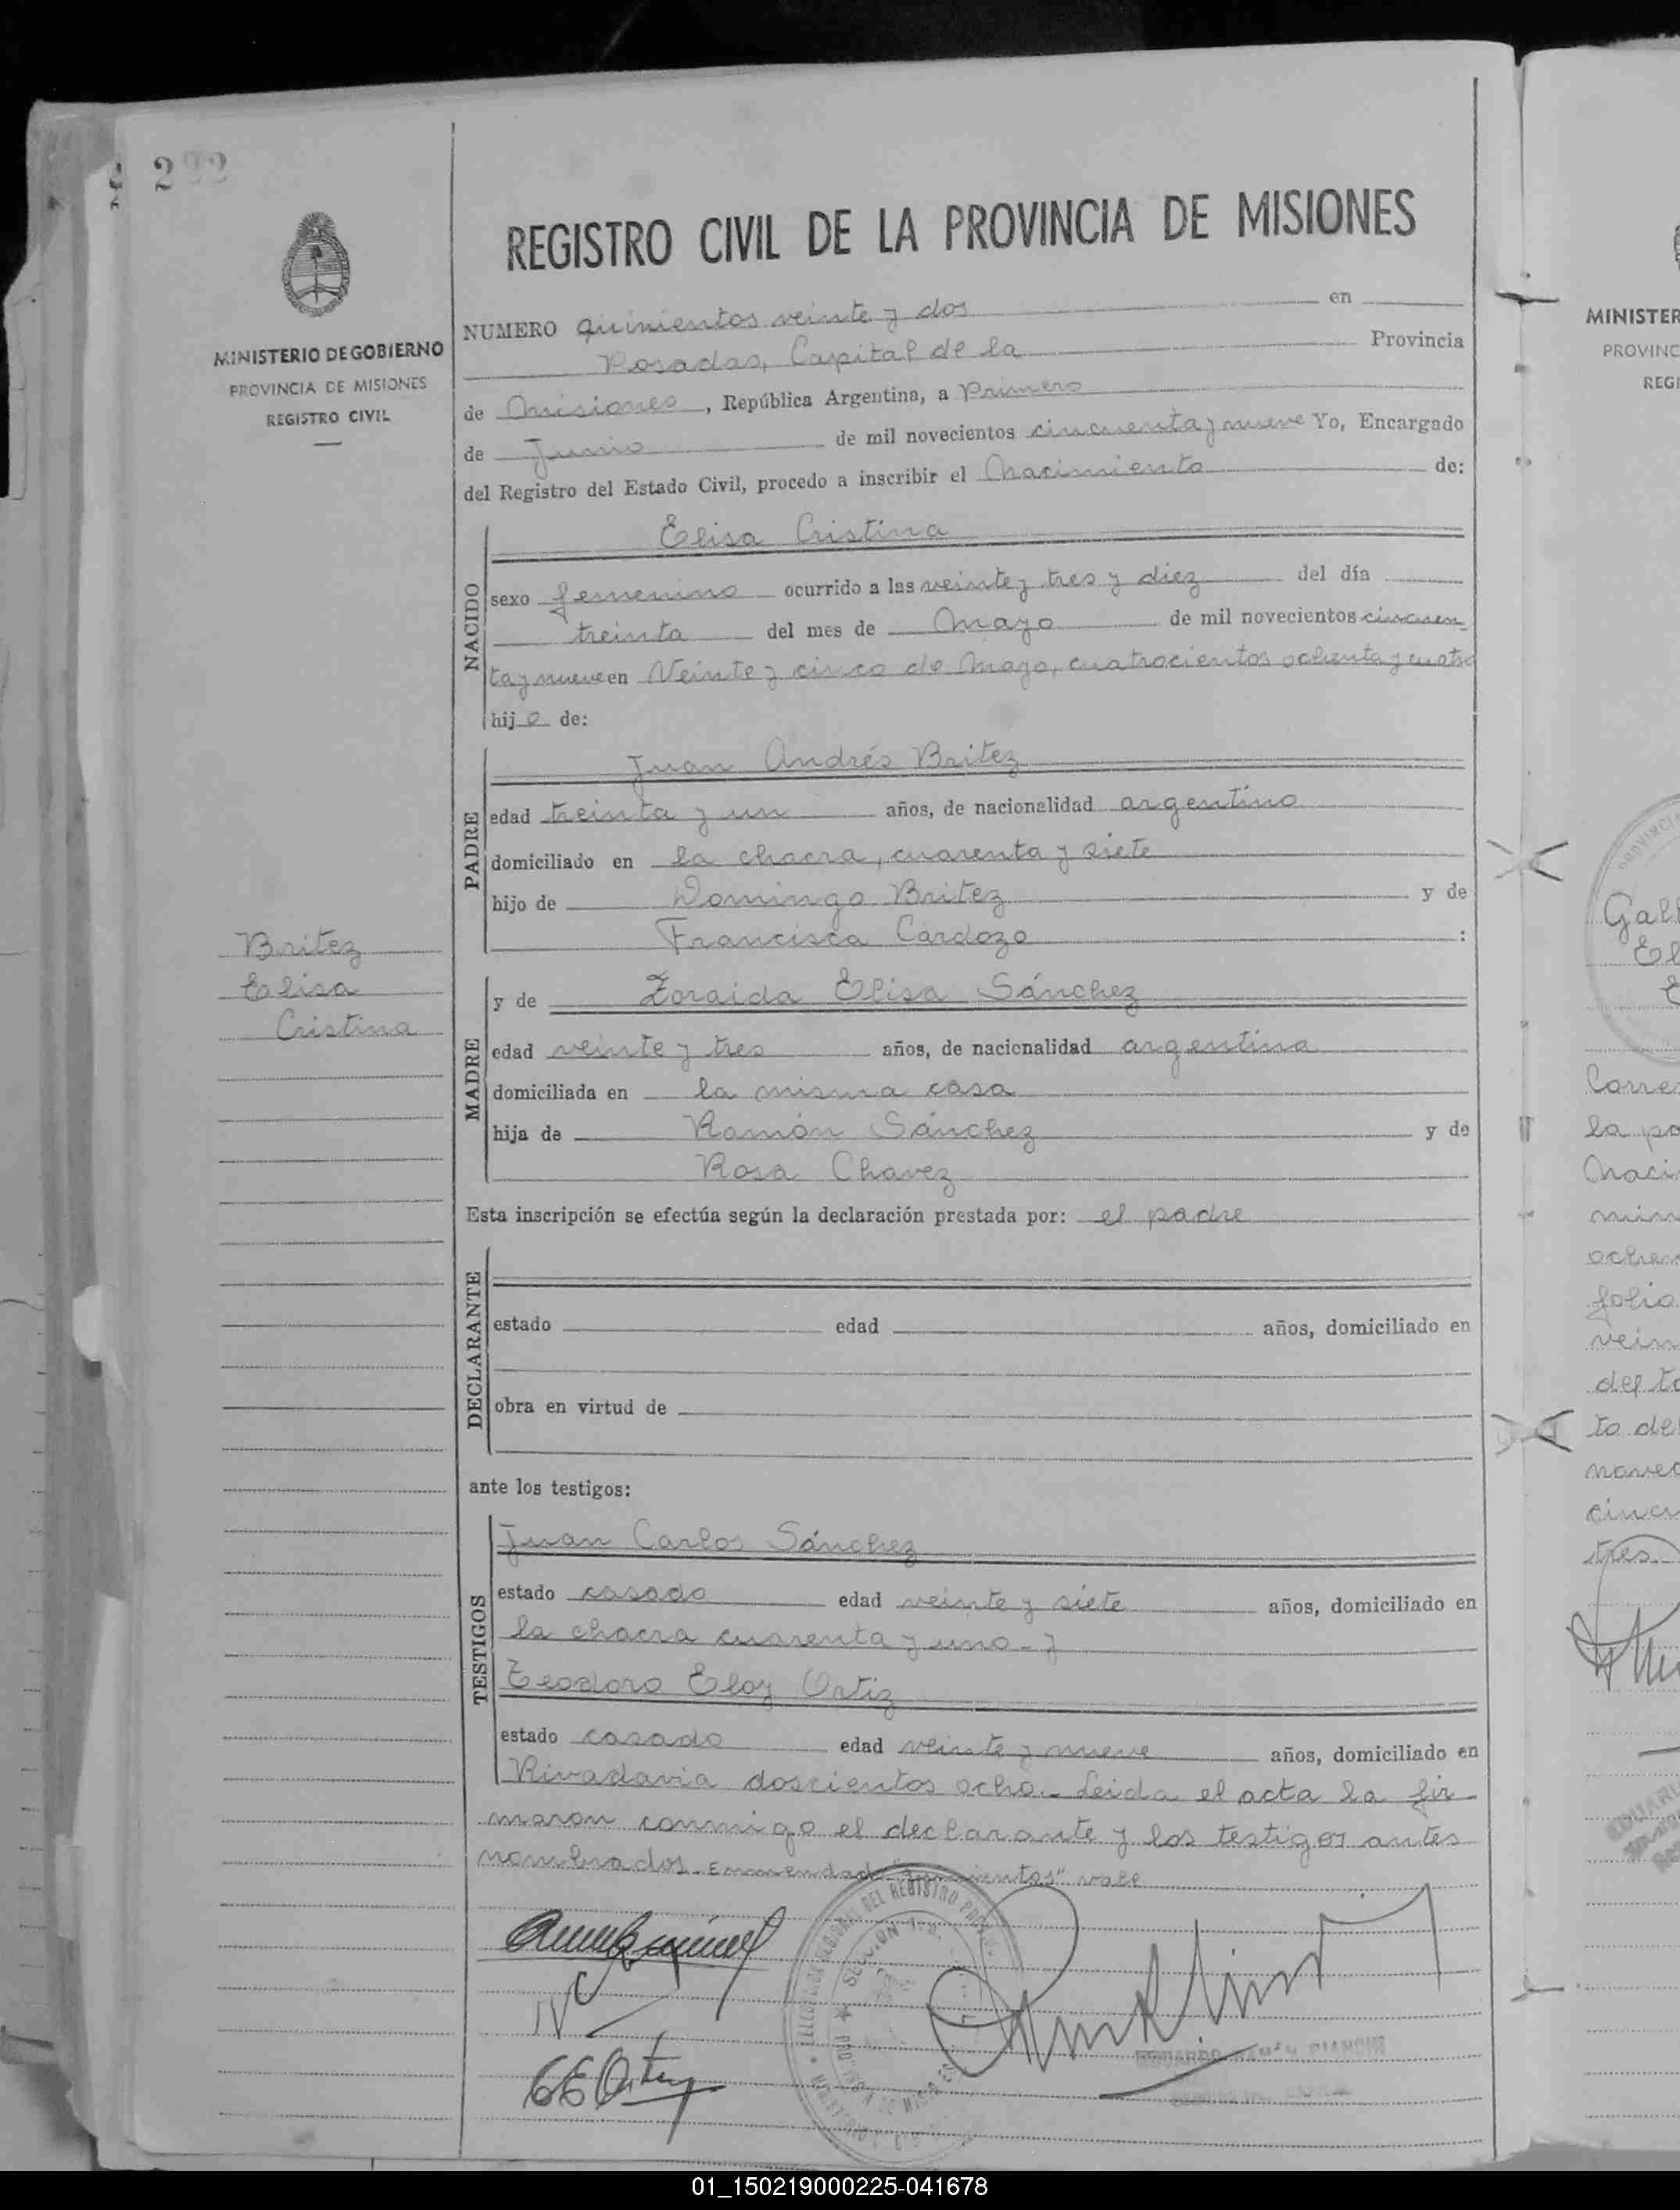 222
REGISTRO CIVIL DE LA PROVINCIA DE MISIONES
MINISTERIO DE GOBIERNO
PROVINCIA DE MISIONES
REGISTRO CIVIL
NUMERO quinientos veinte y dos en
Posadas, Capital de la Provincia
de Misiones, República Argentina, a Primero
de Junio de mil novecientos cincuenta y nueve Yo, Encargado
del Registro del Estado Civil, procedo a inscribir el Nacimiento de:
NACIDO
Elisa Cristina
sexo femenino ocurrido a las veinte y tres y diez del día
treinta del mes de Mayo de mil novecientos cincuen
ta y nueve en Veinte y cinco de Mayo, cuatrocientos ochenta y cuatro
hija de:
PADRE
Juan Andrés Britez
edad treinta y un años, de nacionalidad argentino
domiciliado en la chacra, cuarenta y siete
hijo de Domingo Britez y de
Francisca Cardozo :
Britez
Elisa
Cristina
MADRE
y de Zoraida Elisa Sánchez
edad veinte y tres años, de nacionalidad argentina
domiciliada en la misma casa
hija de Ramón Sánchez y de
Rosa Chavez
Esta inscripción se efectúa según la declaración prestada por: el padre
DECLARANTE
estado edad años, domiciliado en
obra en virtud de
ante los testigos:
TESTIGOS
Juan Carlos Sánchez
estado casado edad veinte y siete años, domiciliado en
la chacra cuarenta y uno - y
Teodoro Eloy Ortiz
estado casado edad veinte y nueve años, domiciliado en
Rivadavia doscientos ocho.- Leida el acta la fir
maron conmigo el declarante y los testigos antes
nombrados. Enmendado vale
SECCION 1
TEOrtiz
EDUARDO RAMÓN BIANCHI
MINISTER
PROVINC
REGI
Gall
El
E
Corres
la pa
Naci
min
ochen
folio
vein
del to
to del
novec
cincu
tres.
EDUARD
01_150219000225-041678